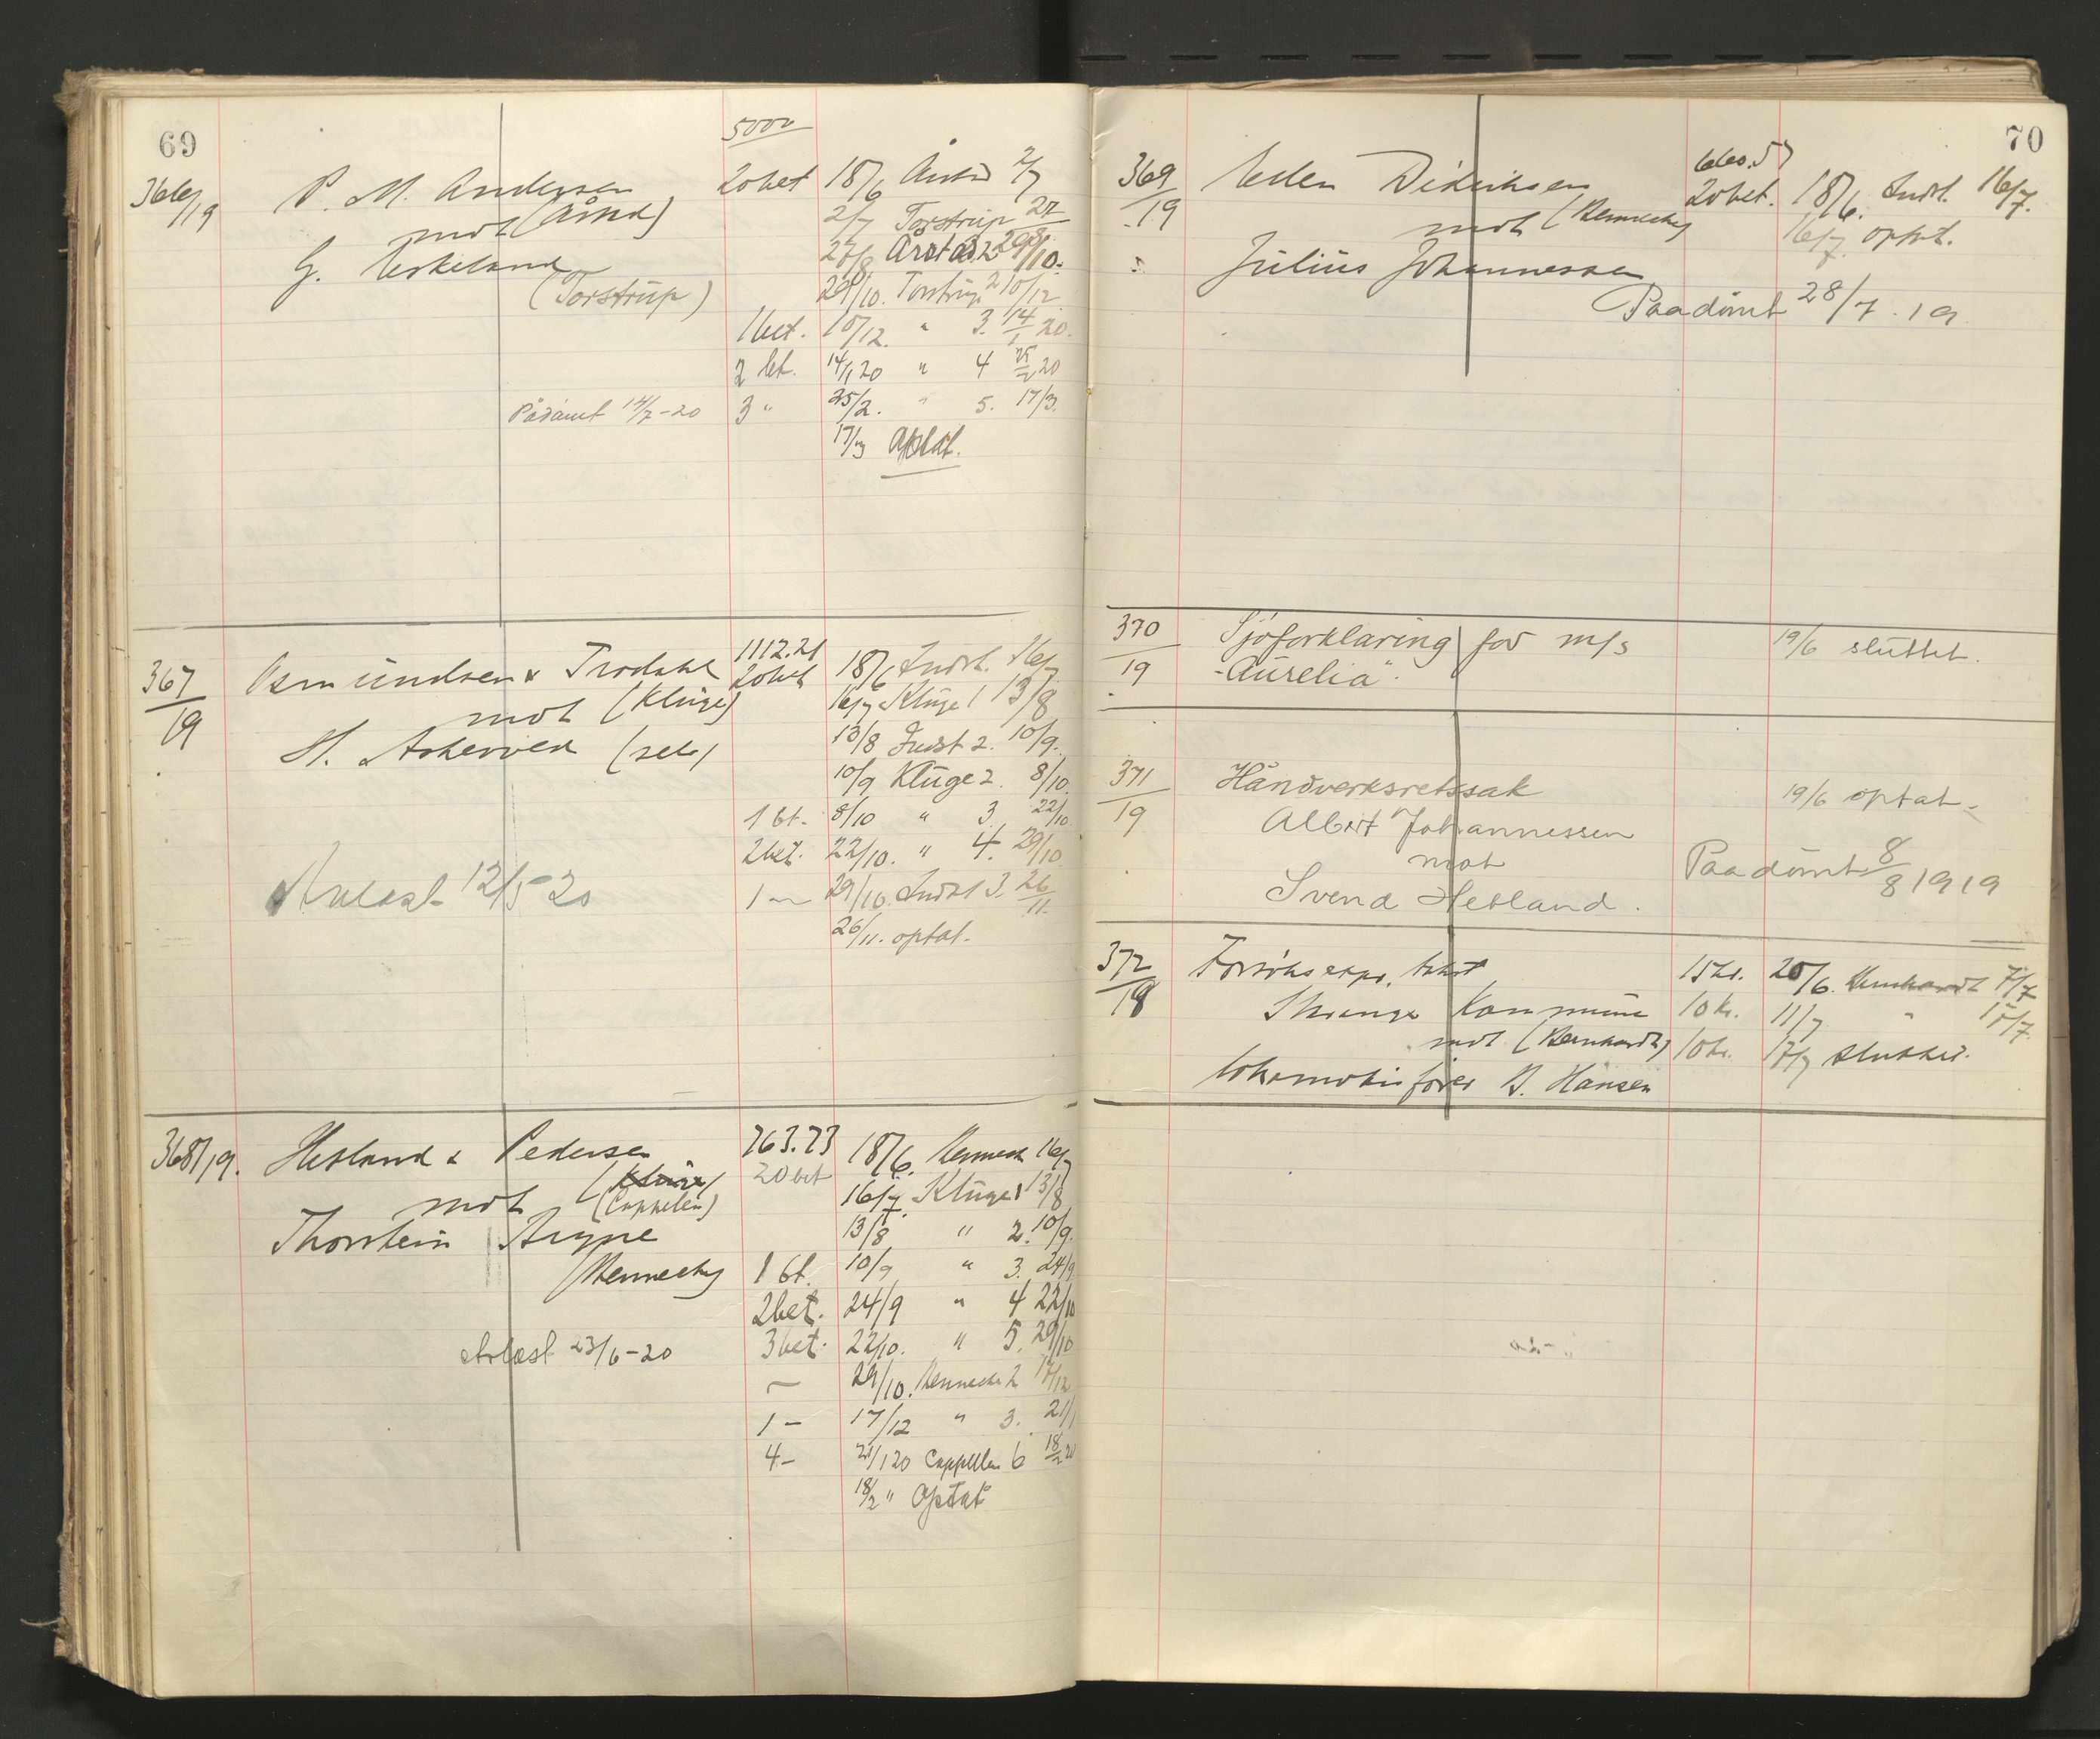 69
5000
366/19 P. M. Andersen 20 bet 18/6 2/7
mot 2/7 Torstrup 27/8
G. 27/8 Årstad 2 29/10.
(Torstrup) 29/10. Torstrup 2 10/12
1 bet. 10/12. " 3. 14/1 20.
2 bet. 14/1 20 " 4 25/2 20
Pådømt 14/7-20 3 " 25/2. " 5. 17/3.
17/3 Optat.
1112.21
367/19 Osmundsen & Trodahl 20 bet 18/6 Indst. 16/7
mot (Kluge) 16/7 Kluge 1 13/8
H. (selv) 13/8 Indst 2. 10/9.
10/9 Kluge 2. 8/10.
1 bt. 8/10 " 3. 22/10
2 bet. 22/10. " 4. 29/10.
Avlæst 12/5 20 1 — 29/10. Indst 3. 26/11.
26/11. optat.
763.73
368/19. Hetland & Pedersen 20 bet 18/6. 16/7
(Kluge) 16/7. Kluge 1 13/8
mot (Cappelen) 13/8 " 2. 10/9.
Thorstein
1 bt. 10/9 " 3. 24/9
2 bet. 24/9 " 4 22/10
Avlæst 23/6-20 3 bet. 22/10. " 5. 29/10
— 29/10. 2 17/12
1 — 17/12 " 3. 21/1
4 — 21/1 20 Cappelen 6 18/2 20
18/2 " Optat
70
369/19 Didriksen 20 bet. 18/6. Indst. 16/7.
mot 16/7. optat.
Julius Johannessen
Paadømt 28/7. 19
370/19 Sjøforklaring for m/s 19/6 sluttet.
"Aurelia".
371/19 Håndverksretssak 19/6 optat.
Albert Johannessen
mot Paadømt 8/8 1919
Svend Hetland.
372/19 15 kr. 20/6. Bernhardt 7/7
Kommune 10 kr. 11/7 " 17/7.
mot (Bernhardt) 10 kr. 17/7 sluttet.
Lokomotivfører Hansen